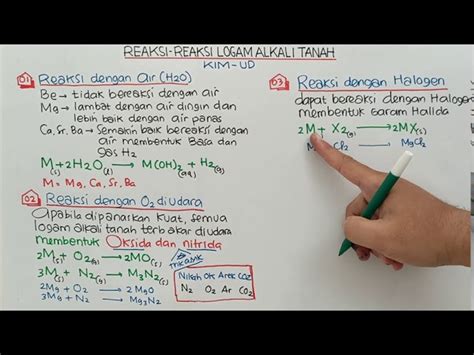 REAKSI-REAKSI LOGAM ALKALI TANAH
KIM-UD
01 Reaksi dengan air (H2O)
Be → tidak bereaksi dengan air
Mg → lambat dengan air dingin dan
lebih baik dengan air panas
Ca, Sr, Ba → Semakin baik bereaksi dengan
air membentuk Basa dan
gas H2
M(s) + 2H2O(l) → M(OH)2(aq) + H2(g)
M = Mg, Ca, Sr, Ba
02 Reaksi dengan O2 diudara
Apabila dipanaskan kuat, semua
logam alkali tanah terbakar diudara
membentuk Oksida dan nitrida
2M(s) + O2(g) → 2MO(s)
3M(s) + N2(g) → M3N2(s)
2Mg + O2 → 2MgO
3Mg + N2 → Mg3N2
N2 O2 Ar CO2
03 Reaksi dengan Halogen
dapat bereaksi dengan Halogen
membentuk garam Halida
2M + X2(g) → 2MX(s)
M Cl2 → MgCl2